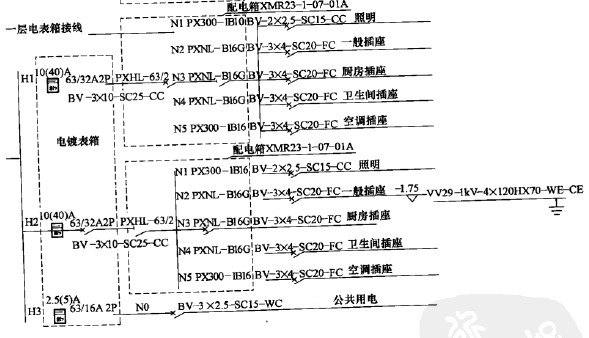 配电箱XMR23-1-07-01A
一层电表箱接线
N1 PX300-IB10 BV-2×2.5-SC15-CC 照明
N2 PXNL-B16G BV-3×4-SC20-FC 一般插座
H1 10(40)A 63/32A2P PXHL-63/2 N3 PXNL-B16G BV-3×4-SC20-FC 厨房插座
BV-3×10-SC25-CC N4 PXNL-B16G BV-3×4-SC20-FC 卫生间插座
N5 PX300-IB16 BV-3×4-SC20-FC 空调插座
电镀表箱
配电箱XMR23-1-07-01A
N1 PX300-IB16 BV-2×2.5-SC15-CC 照明
N2 PXNL-B16G BV-3×4-SC20-FC 一般插座 -1.75 VV29-1kV-4×120HX70-WE-CE
H2 10(40)A 63/32A2P PXHL-63/2 N3 PXNL-B16G BV-3×4-SC20-FC 厨房插座
BV-3×10-SC25-CC N4 PXNL-B16G BV-3×4-SC20-FC 卫生间插座
N5 PX300-IB16 BV-3×4-SC20-FC 空调插座
H3 2.5(5)A 63/16A 2P N0 BV-3×2.5-SC15-WC 公共用电